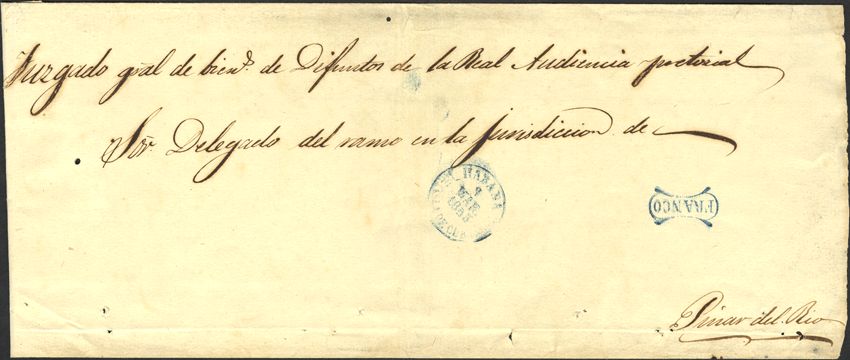 Juzgado gr̃al de bien.s de Difuntos de la Real Audiencia pretorial
Sõr. Delegado del ramo en la jurisdiccion de
HABANA
MAR
1853
FRANCO
Pinar del Rio